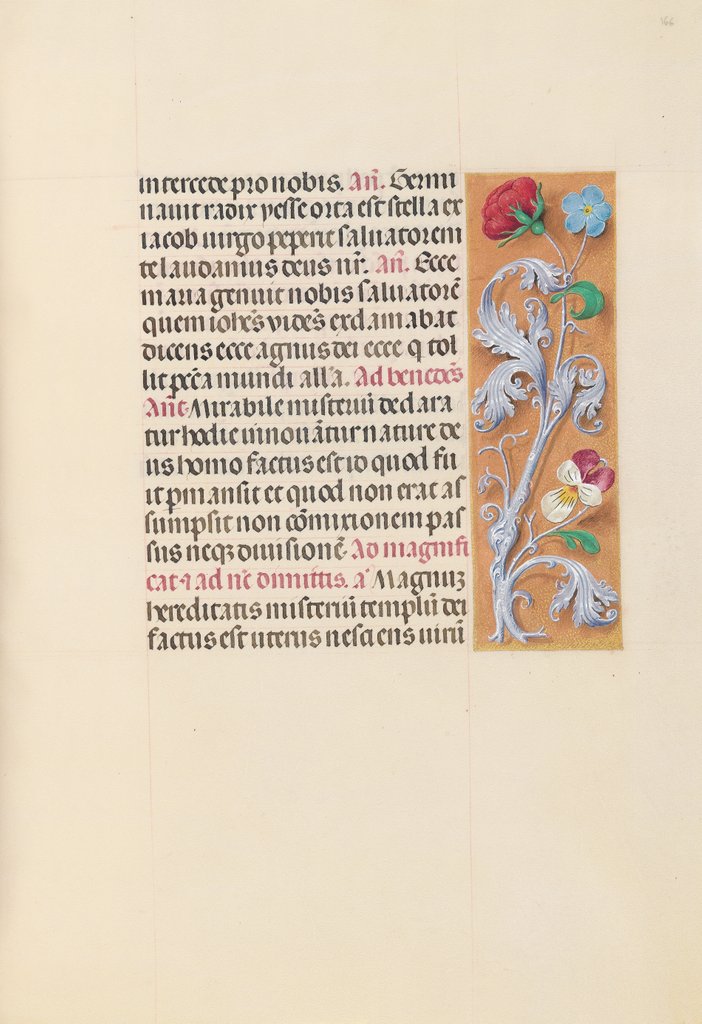 166
intercede pro nobis. Añ. Germi
nauit radix yesse orta est stella ex
iacob uirgo peperit saluatorem
te laudamus deus nr̃. Añ. Ecce
maria genuit nobis saluatorē
quem iohēs vidēs exclamabat
dicens ecce agnus dei ecce q tol
lit pc̄ca mundi alla. Ad benedc̄s
Anē Mirabile misteriū declara
tur hodie innouātur nature de
us homo factus est id quod fu
it pmansit et quod non erat as
sumpsit non cōmixionem pas
sus neqꝫ diuisionē. Ad magnifi
cat ⁊ ad nc̄ dimittis. a͂ Magnuꝫ
hereditatis misteriū templū dei
factus est uterus nesciens uirū